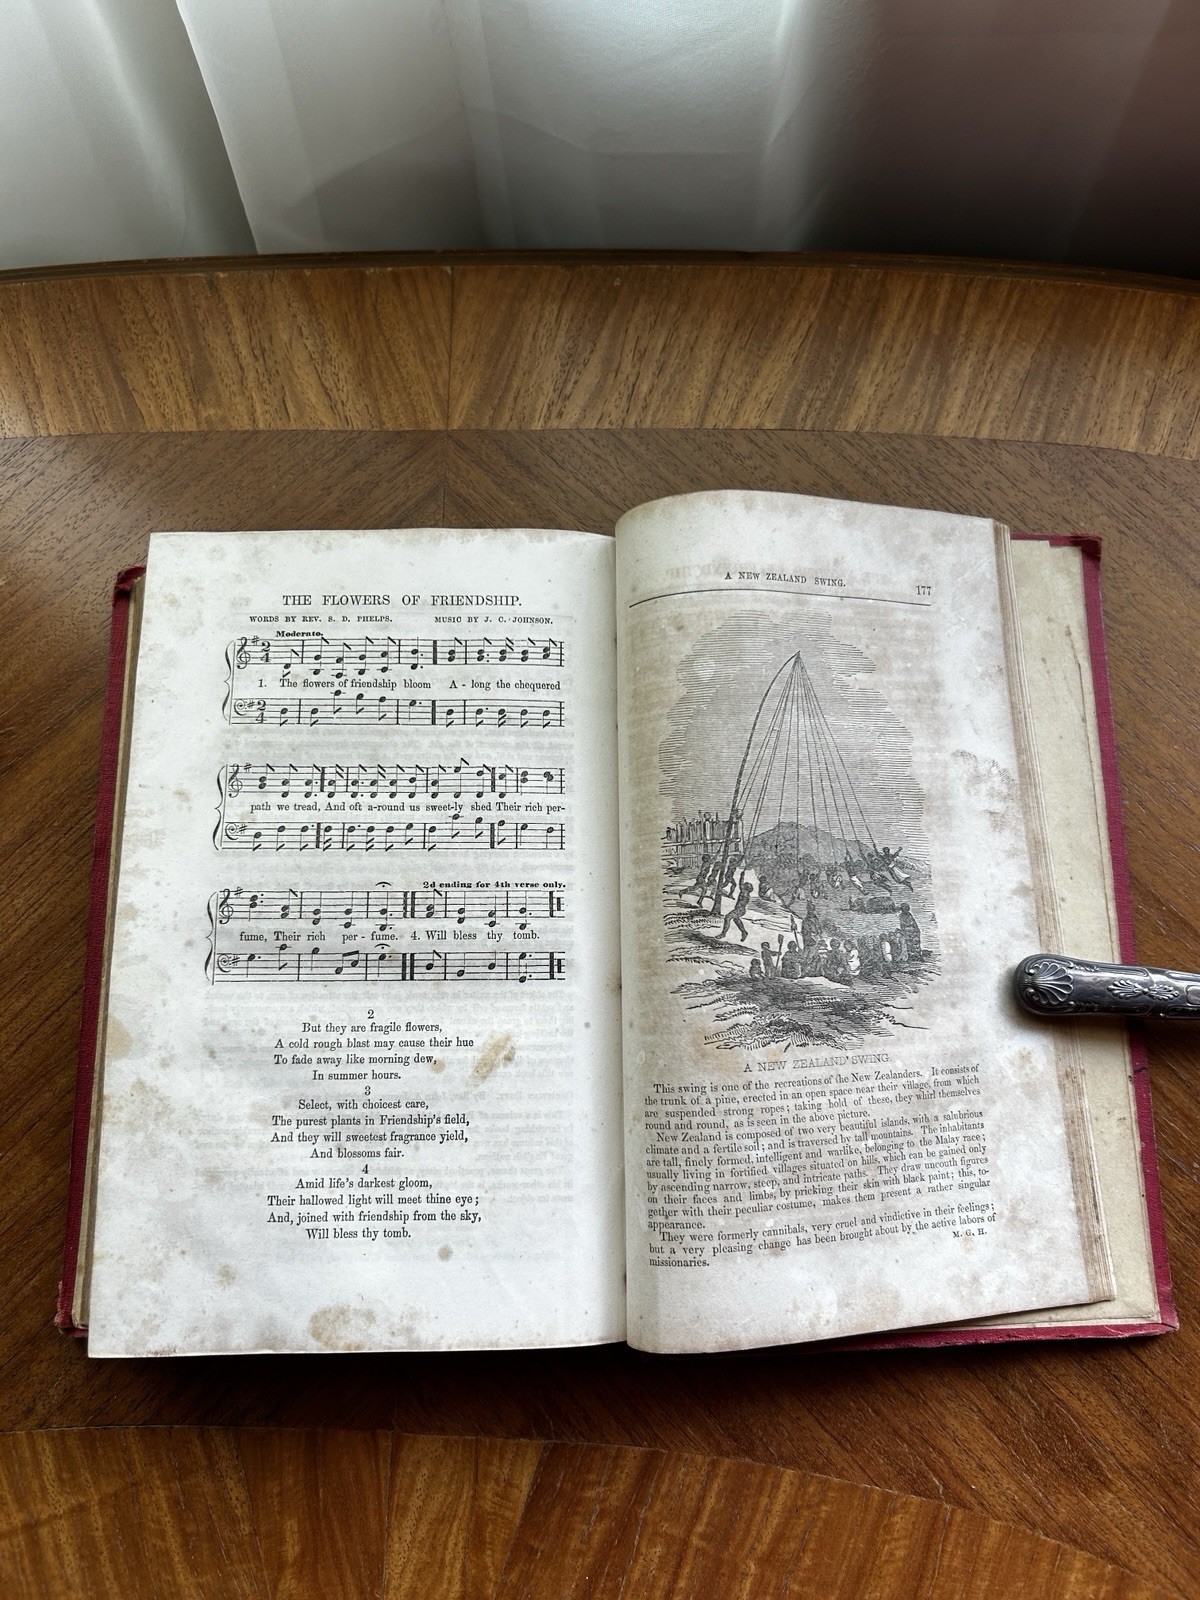 THE FLOWERS OF FRIENDSHIP.
WORDS BY REV. S. D. PHELPS. MUSIC BY J. C. JOHNSON.
Moderato.
2
4
1. The flowers of friendship bloom A - long the chequered
2
4
path we tread, And oft a-round us sweet-ly shed Their rich per-
2d ending for 4th verse only.
fume, Their rich per - fume. 4. Will bless thy tomb.
2
But they are fragile flowers,
A cold rough blast may cause their hue
To fade away like morning dew,
In summer hours.
3
Select, with choicest care,
The purest plants in Friendship's field,
And they will sweetest fragrance yield,
And blossoms fair.
4
Amid life's darkest gloom,
Their hallowed light will meet thine eye;
And, joined with friendship from the sky,
Will bless thy tomb.
A NEW ZEALAND SWING. 177
A NEW ZEALAND SWING.
This swing is one of the recreations of the New Zealanders. It consists of
the trunk of a pine, erected in an open space near their village, from which
are suspended strong ropes; taking hold of these, they whirl themselves
round and round, as is seen in the above picture.
New Zealand is composed of two very beautiful islands, with a salubrious
climate and a fertile soil; and is traversed by tall mountains. The inhabitants
are tall, finely formed, intelligent and warlike, belonging to the Malay race;
usually living in fortified villages situated on hills, which can be gained only
by ascending narrow, steep, and intricate paths. They draw uncouth figures
on their faces and limbs, by pricking their skin with black paint; this, to-
gether with their peculiar costume, makes them present a rather singular
appearance.
They were formerly cannibals, very cruel and vindictive in their feelings;
but a very pleasing change has been brought about by the active labors of
missionaries. M. G. H.